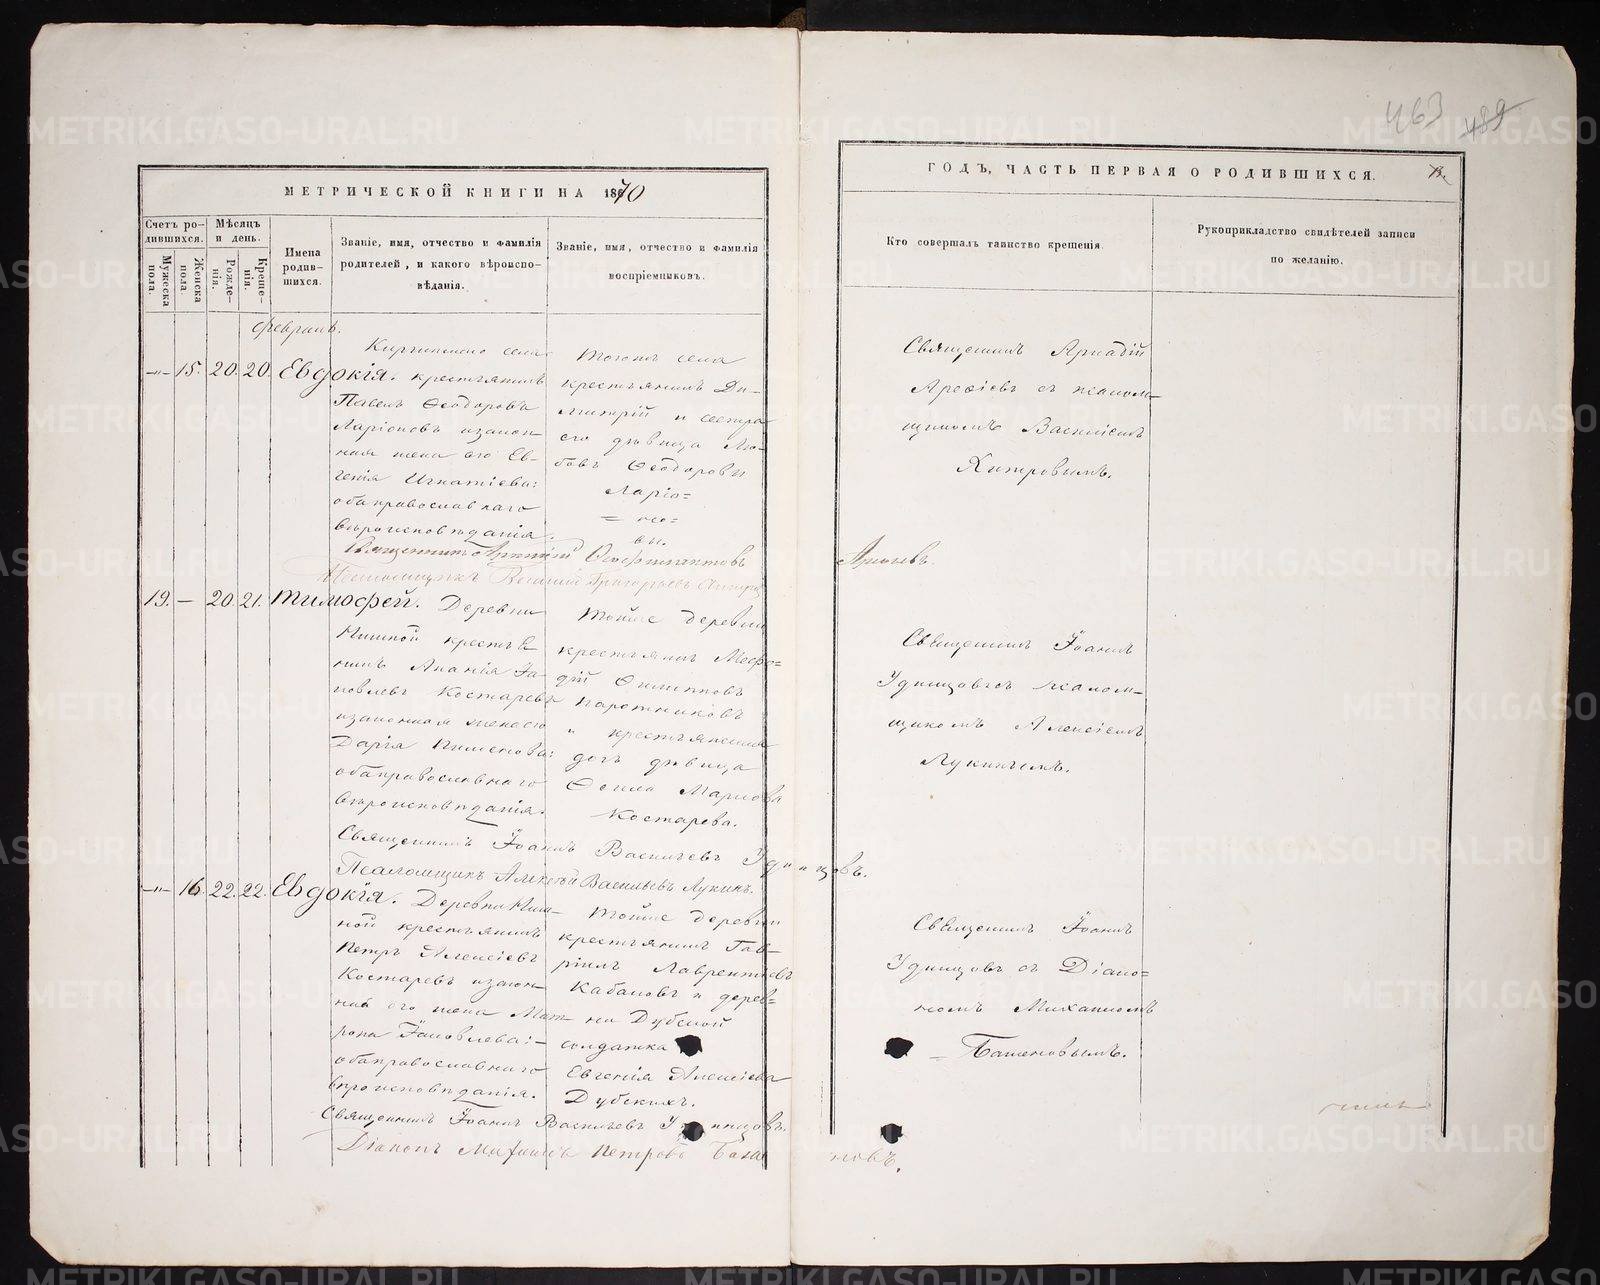 463 489
МЕТРИЧЕСКОЙ КНИГИ НА 1870
ГОДЪ, ЧАСТЬ ПЕРВАЯ О РОДИВШИХСЯ.
Счетъ ро-
дившихся.
Мужеска пола.
Женска пола.
Мѣсяцъ
и день.
Рожде-
нія.
Креще-
нія.
Имена
родив-
шихся.
Званіе, имя, отчество и фамилія
родителей, и какого вѣроиспо-
вѣданія.
Званіе, имя, отчество и фамилія
воспріемниковъ.
Кто совершалъ таинство крещенія.
Рукоприкладство свидѣтелей записи
по желанію.
февраль.
—"— 15. 20. 20. Евдокія.
села
крестьянинъ
Павелъ Ѳеодоровъ
Ларіоновъ изакон-
ная жена его Ев-
генія Игнатіева:
оба православнаго
вѣроисповѣданія.
Тогоже села
крестьянинъ Ди-
митрій и сестра
его дѣвица Лю-
бовь Ѳеодоровы
Ларіо=
= но=
вы.
Священникъ Аркадій
Арефіевъ съ псалом-
щикомъ Василіемъ
Хитровымъ.
Священникъ Аркадій
Псаломщикъ Василій Григорьевъ
19. — 20. 21. Тимофей.
Деревни
крестья-
нинъ Ананія Іа-
ковлевъ Костаревъ
изаконная жена его
Дарія Пименова:
оба православнаго
вѣроисповѣданія.
Тойже деревни
крестьянинъ Мефо-
дій Филиповъ
" крестьянская
дочь дѣвица
Маркова
Костарева.
Священникъ Іоаннъ
Удинцовъ съ псалом-
щикомъ Алексіемъ
Лукинымъ.
Священникъ Іоаннъ Васильевъ Удинцовъ.
Псаломщикъ Алексѣй Васильевъ Лукинъ.
—"— 16. 22. 22. Евдокія.
Деревни
ной крестьянинъ
Петръ Алексіевъ
Костаревъ изакон-
ная его жена Мат-
рона Іаковлева:-
оба православнаго
вѣроисповѣданія.
Тойже деревни
крестьянинъ Гав-
ріилъ Лаврентіевъ
Кабаковъ и дерев=
ни Дубской
солдатка
Евгенія Алексіева
Дубскихъ.
Священникъ Іоаннъ
Удинцовъ съ Діако=
номъ Михаиломъ
Баженовымъ.
Священникъ Іоаннъ Васильевъ Удинцовъ.
Діаконъ Михаилъ Петровъ Баженовъ.
METRIKI.GASO-URAL.RU